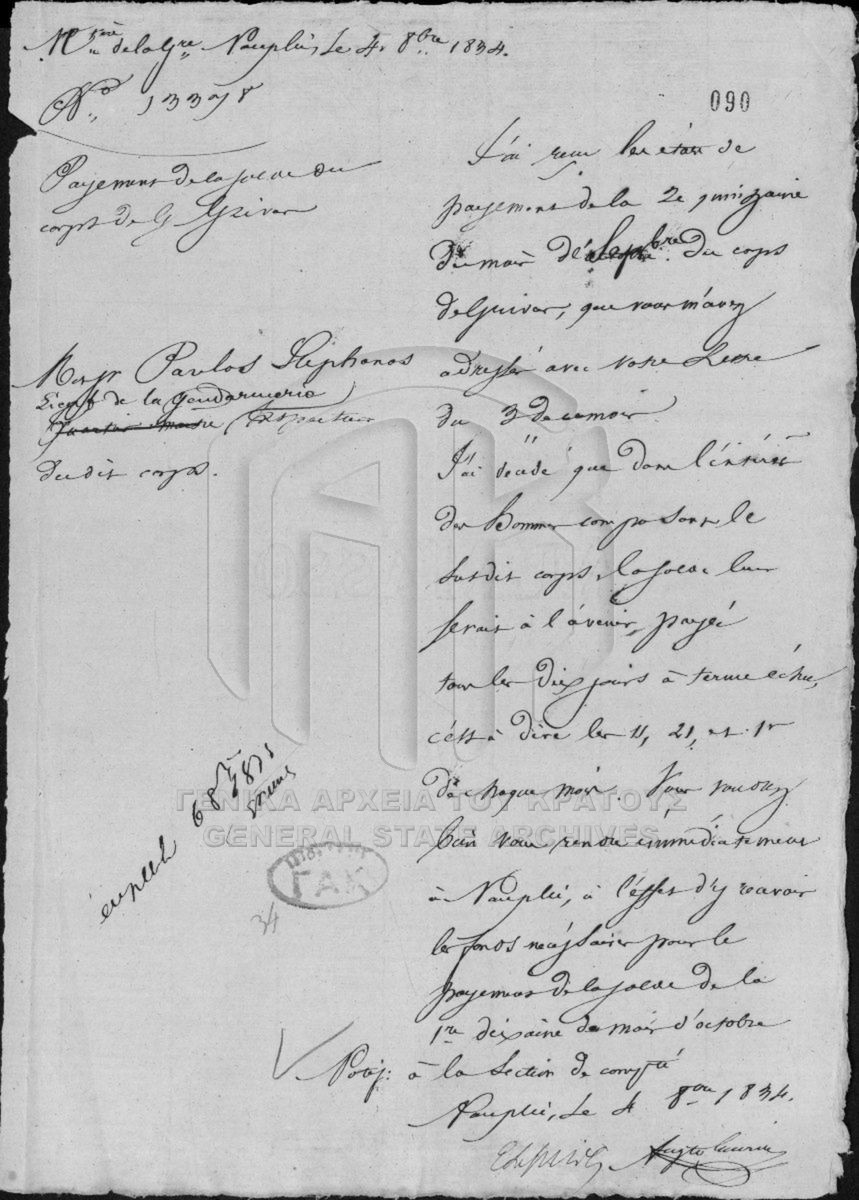 Nauplie, Le 4. 8bre 1834.
No. 13378
090
Payement de la solde du
corps de G. Grivas
Monsr Pavlos Stéphanos
Lieut de la Gendarmerie
du dit corps.
J'ai reçu les états de
payement de la 2e quinzaine
du mois de Sepbre du corps
de Grivas, que vous m'avez
adressés avec votre Lettre
du 3 de ce mois.
J'ai décidé que dans l'intérêt
des Hommes composant le
susdit corps, la solde leur
serait à l'avenir, payée
tous les dix jours à terme échu,
c'est à dire les 11, 21, et 1r
de chaque mois. Vous voudrez
bien vous rendre immédiatement
à Nauplie, à l'effet d'y recevoir
les fonds nécéssaires pour le
payement de la solde de la
1re dixaine du mois d'octobre
à la Section de compté
Nauplie, Le 4 8bre 1834.
34
ΓΑΚ
ΓΕΝΙΚΑ ΑΡΧΕΙΑ ΤΟΥ ΚΡΑΤΟΥΣ
GENERAL STATE ARCHIVES